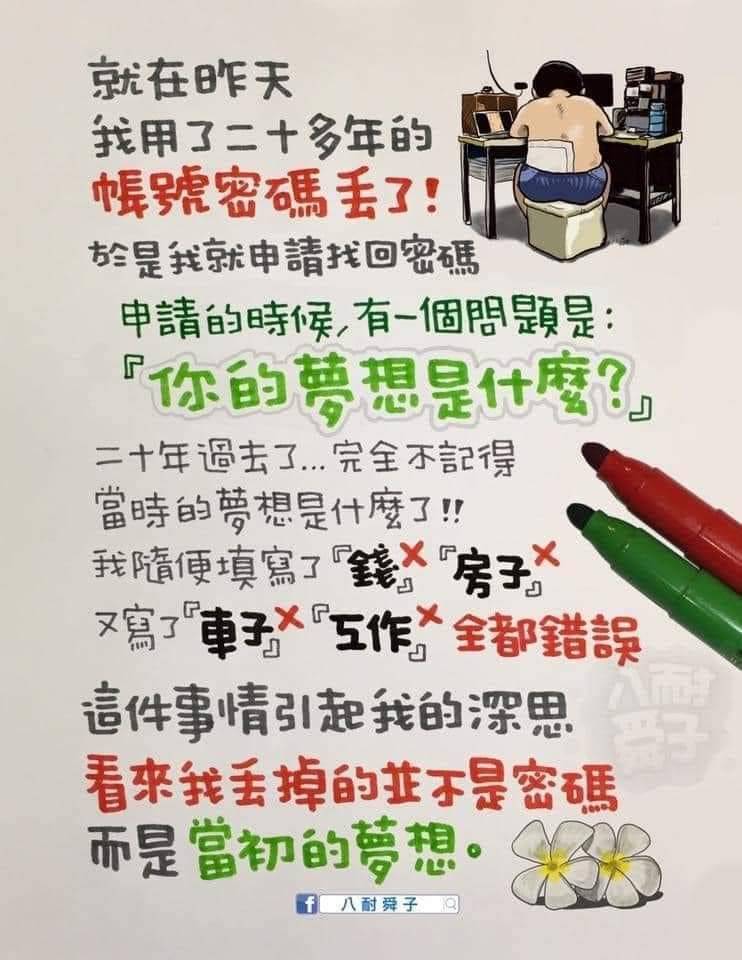 就在昨天
我用了二十多年的
帳號密碼丟了!
於是我就申請找回密碼
申請的時候,有一個問題是:
『你的夢想是什麼?』
二十年過去了...完全不記得
當時的夢想是什麼了!!
我隨便填寫了『錢』×『房子』×
又寫了『車子』×『工作』× 全都錯誤
八耐舜子
這件事情引起我的深思
看來我丟掉的並不是密碼
而是當初的夢想。
f 八耐舜子